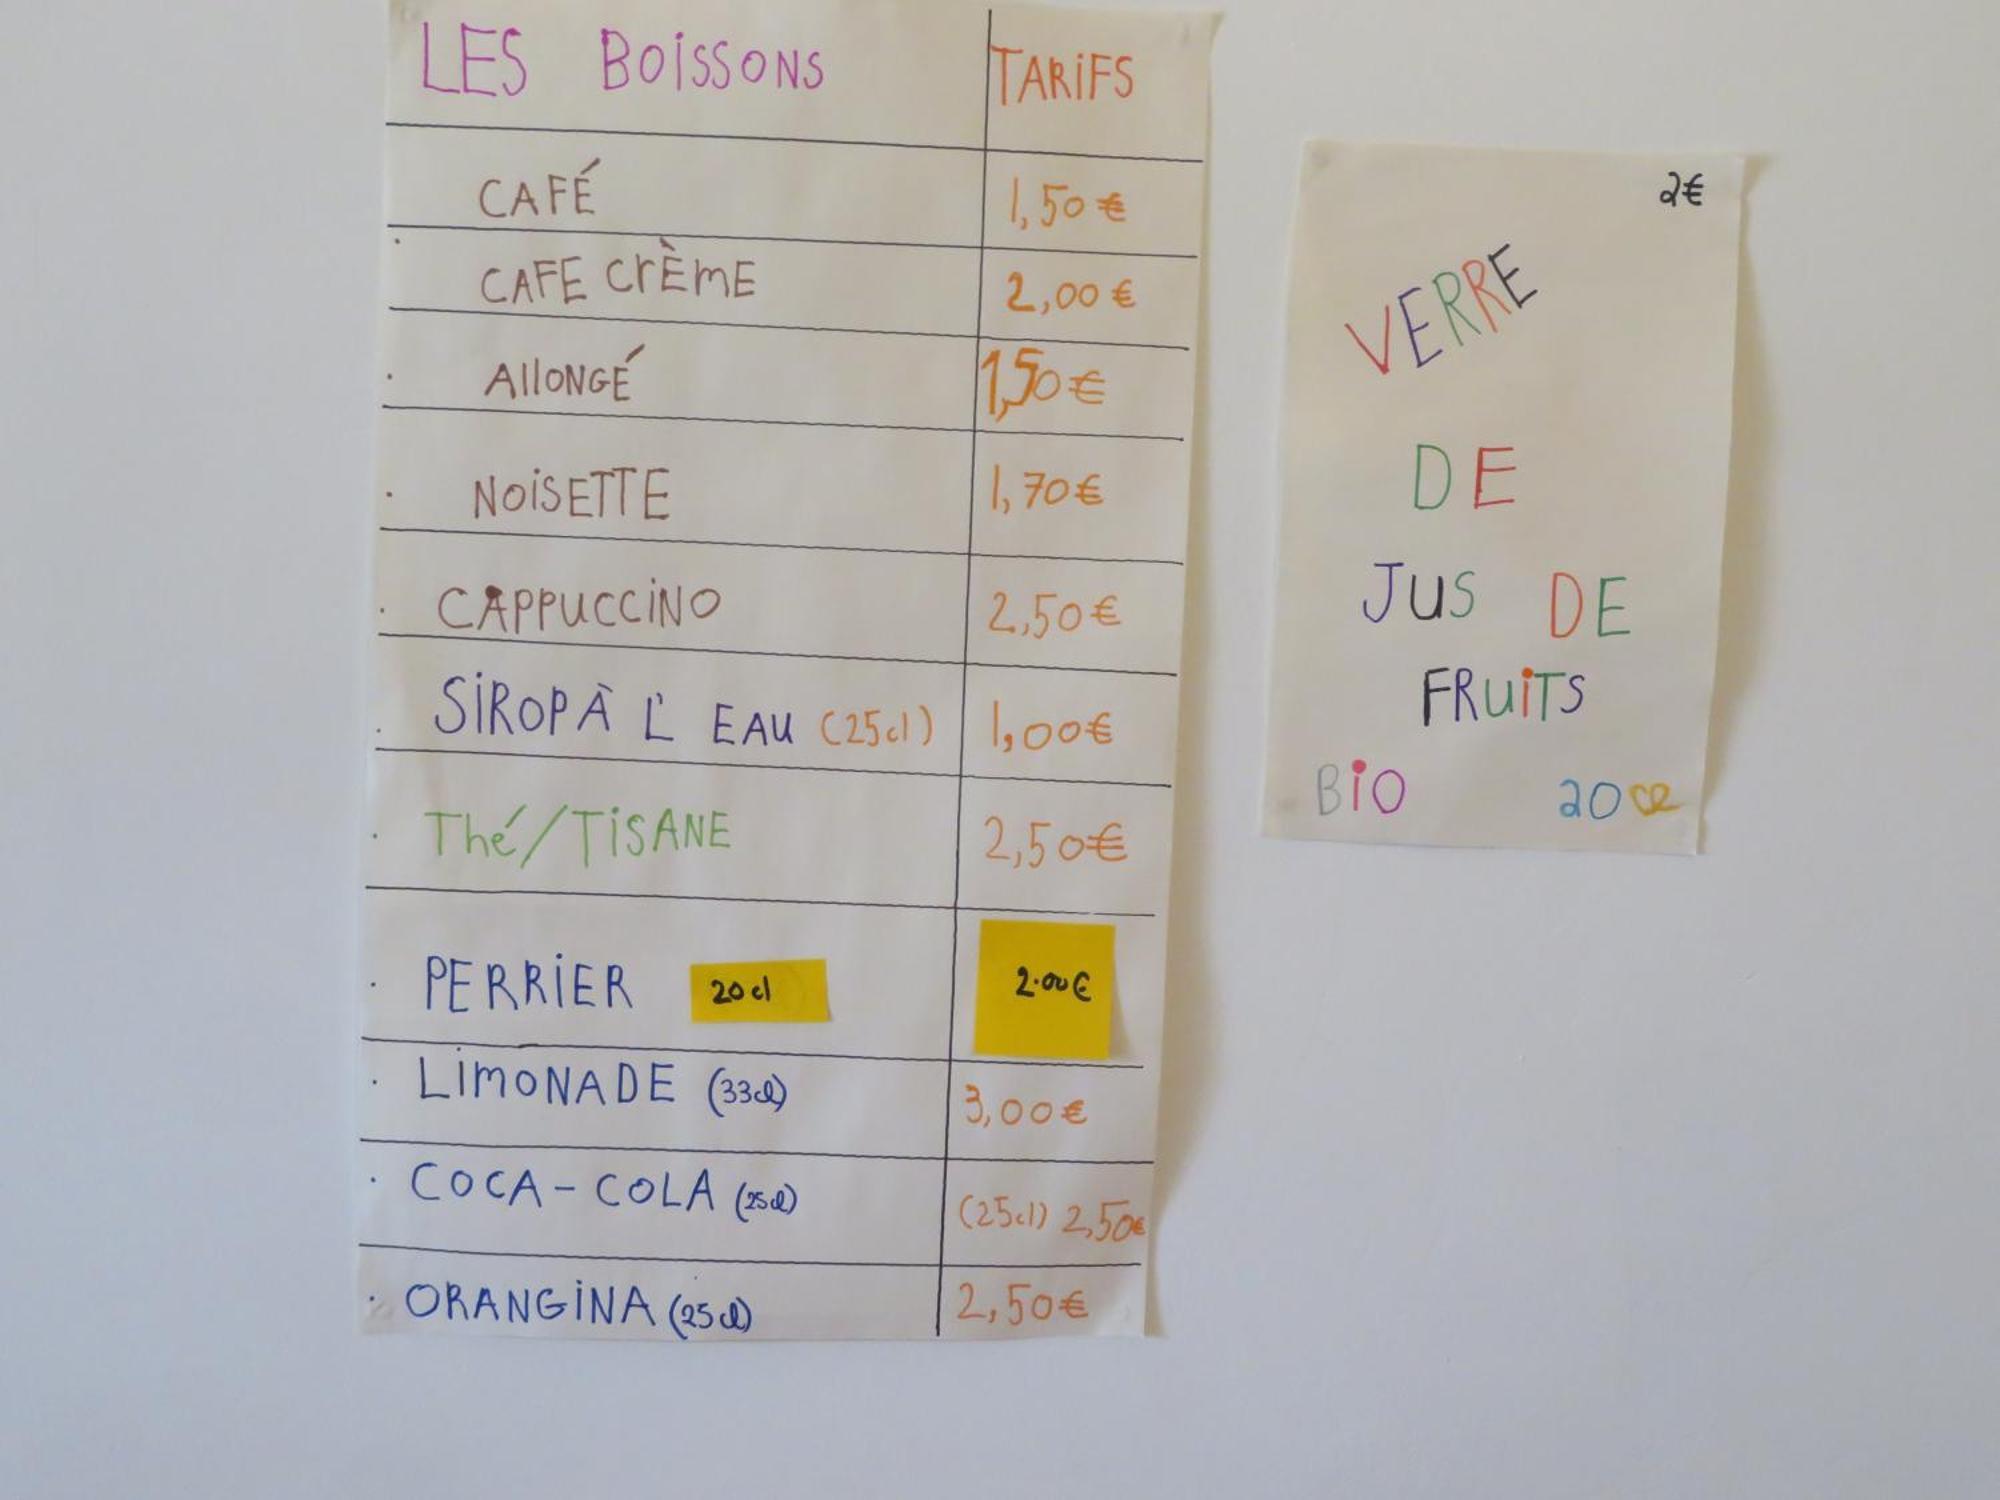 LES BOiSSONS TARiFS
CAFÉ 1,50 €
CAFE CrÈmE 2,00 €
AllONGÉ 1,50 €
NOiSETTE 1,70 €
CAPPUCCiNO 2,50 €
SiROP À L' EAU (25cl) 1,00 €
Thé/TiSANE 2,50 €
PERRiER 20cl 2.00 €
LimONADE (33cl) 3,00 €
COCA-COLA (25cl) (25cl) 2,50 €
ORANGiNA (25cl) 2,50 €
2€
VERRE
DE
JuS DE
FRuiTS
BiO 20cl